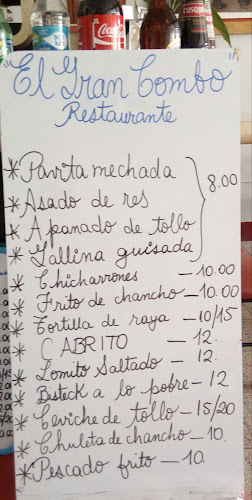 "El Gran Combo"
Restaurante
* Pavita mechada
* Asado de res
* Apanado de tollo
* Gallina guisada
8.00
* Chicharrones — 10.00
* Frito de chancho — 10.00
* Tortilla de raya — 10/15
* CABRITO — 12.
* Lomito Saltado — 12.
* Bisteck a lo pobre — 12
* Ceviche de tollo — 15/20
* Chuleta de chancho — 10.
* Pescado frito — 10.